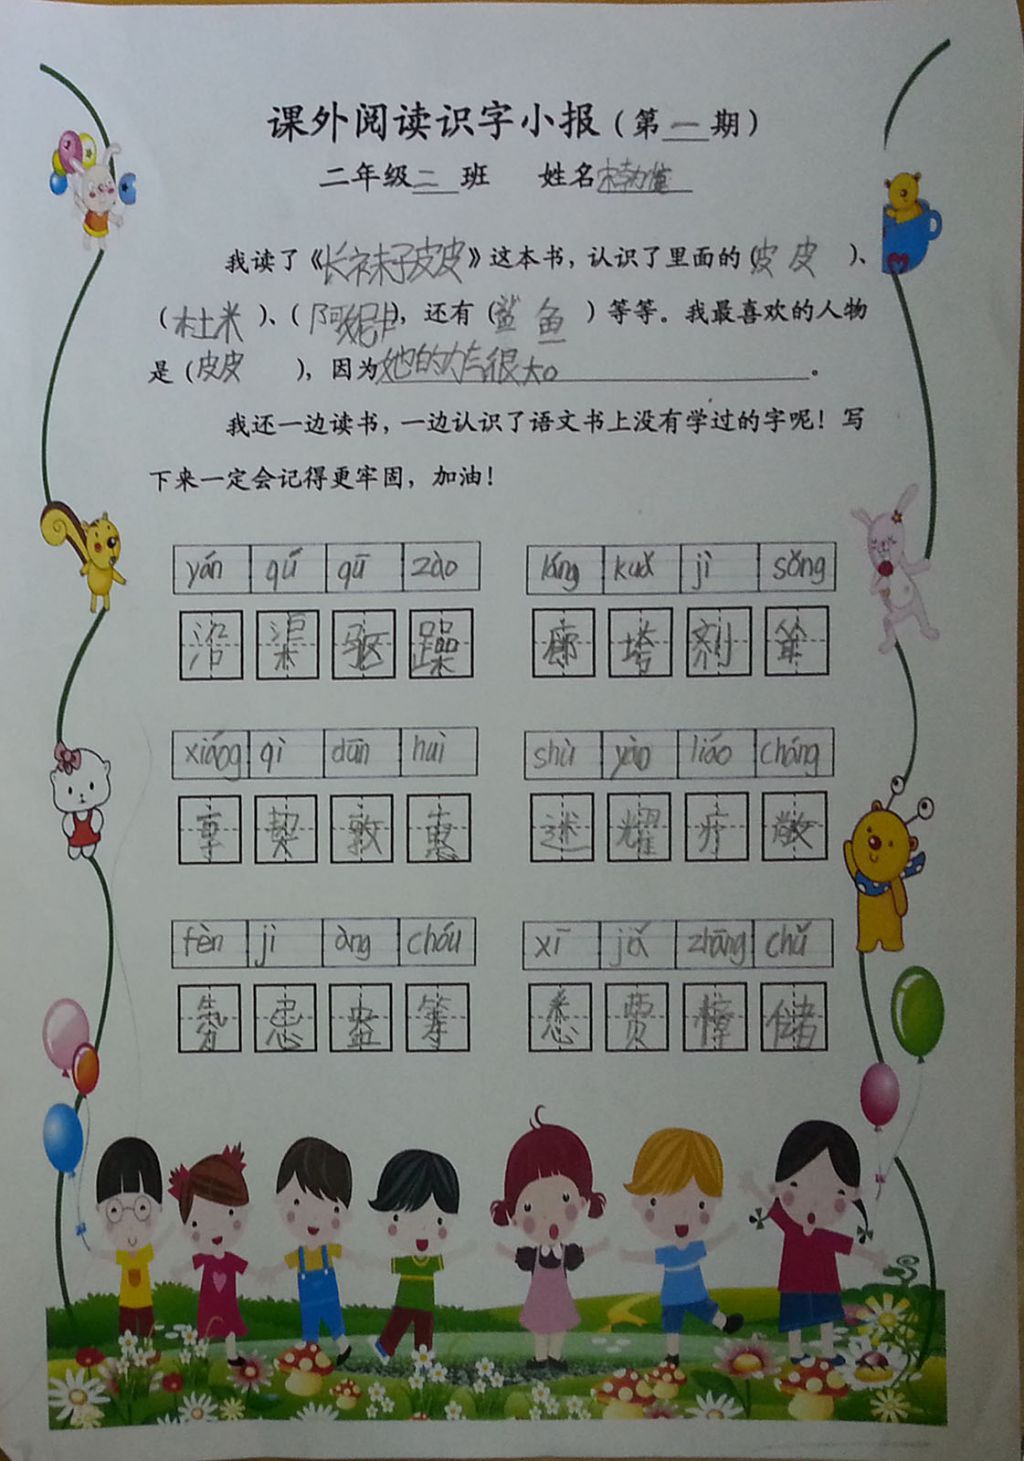 课外阅读识字小报（第一期）
二年级二班 姓名宋勃
我读了《长袜子皮皮》这本书，认识了里面的（皮皮）、
（杜米）、（阿妮卡），还有（鲨鱼）等等。我最喜欢的人物
是（皮皮），因为她的力气很大。。
我还一边读书，一边认识了语文书上没有学过的字呢！写
下来一定会记得更牢固，加油！
yán qú qū zào láng kuǎ jì sǒng
沿 渠 驱 躁 廊 垮 剂
xiáng qì dūn huì shù yào liáo cháng
享 契 敦 惠 述 耀 疗 敞
fèn jì àng chóu xī jiǎ zhāng chǔ
忌 盎 筹 悉 贾 樟 储